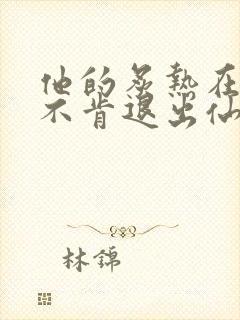 他的炙热在
不肯退出仙
林锦